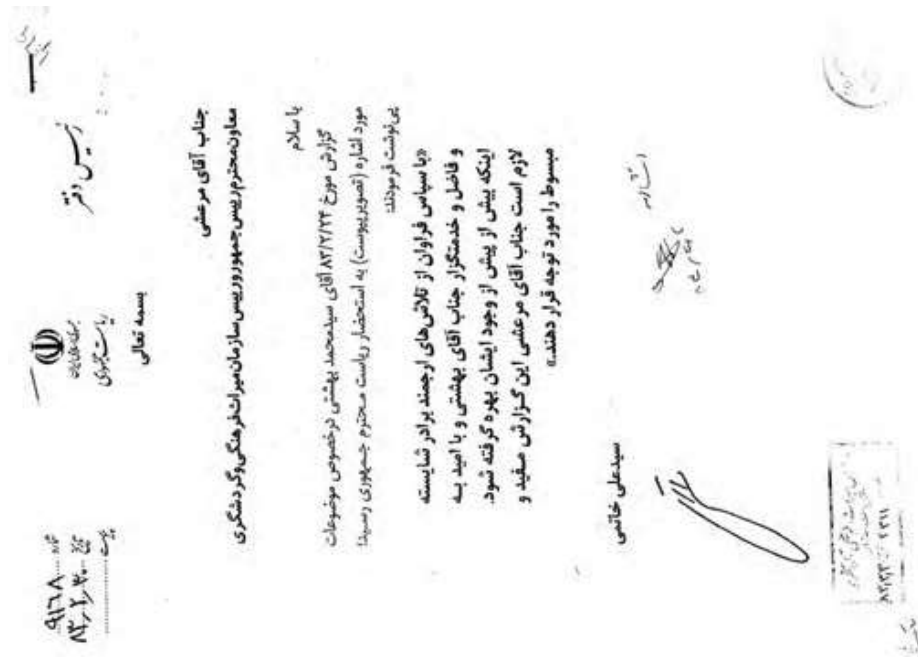 جمهوری اسلامی ایران
ریاست جمهوری
رئیس دفتر
شماره ۹۱۶۸
تاریخ ۸۳،۲،۳۰
پیوست
بسمه تعالی
جناب آقای مرعشی
معاون محترم رییس جمهور و رییس سازمان میراث فرهنگی و گردشگری
با سلام
گزارش مورخ ۸۳/۲/۲۴ آقای سیدمحمد بهشتی درخصوص موضوعات
مورد اشاره (تصویر پیوست) به استحضار ریاست محترم جمهوری رسید؛
پی‌نوشت فرمودند:
«با سپاس فراوان از تلاش‌های ارجمند برادر شایسته
و فاضل و خدمتگزار جناب آقای بهشتی و با امید به
اینکه بیش از پیش از وجود ایشان بهره گرفته شود.
لازم است جناب آقای مرعشی این گزارش مفید و
مبسوط را مورد توجه قرار دهند.»
سیدعلی خاتمی